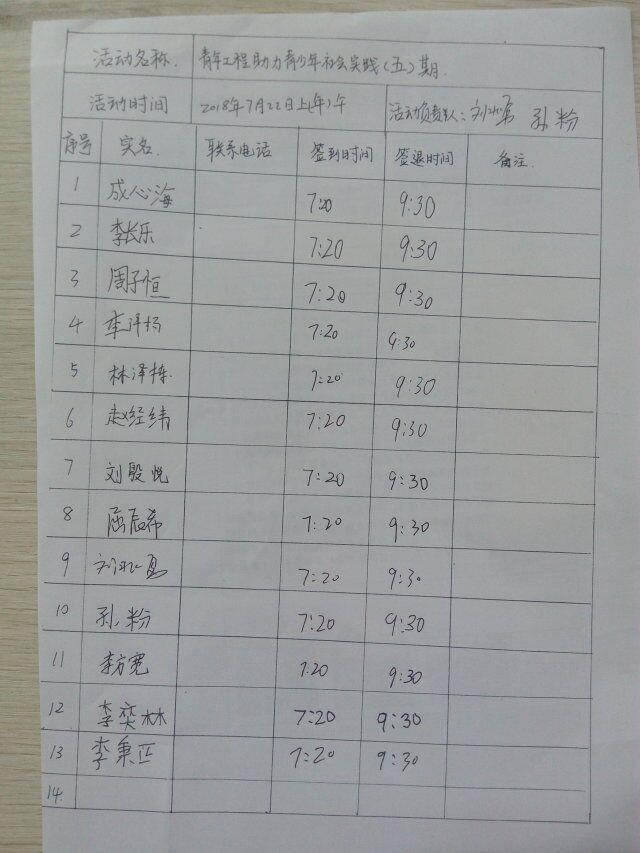 活动名称. 青年工程助力青少年社会实践(五)期.
活动时间 2018年7月22日上(午)午 活动负责人: 孙粉
序号 实名. 联系电话 签到时间 签退时间 备注.
1 成心海 7:20 9:30
2 李长乐 7:20 9:30
3 周子恒 7:20 9:30
4 李泽扬 7:20 9:30
5 林泽栋. 7:20 9:30
6 赵经纬 7:20 9:30
7 刘殷悦 7:20 9:30
8 屈辰希 7:20 9:30
9 7:20 9:30
10 孙粉 7:20 9:30
11 李方宽 7:20 9:30
12 李奕林 7:20 9:30
13 李秉正 7:20 9:30
14.